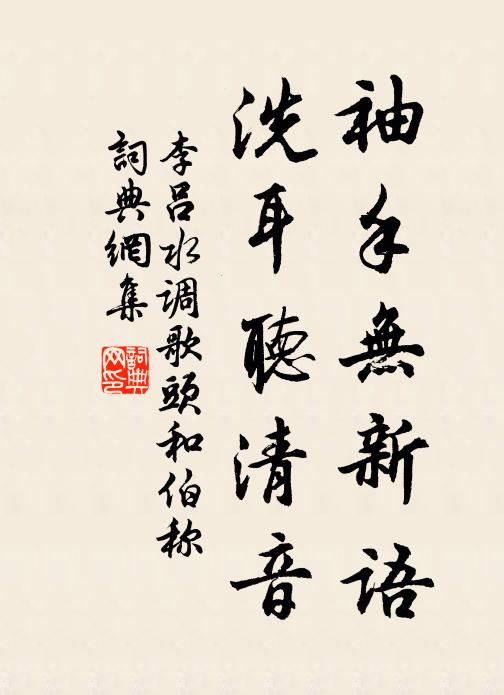 袖手無新語
洗耳聽清音
李呂水调歌頭和伯称
詞典網集
詞典网印